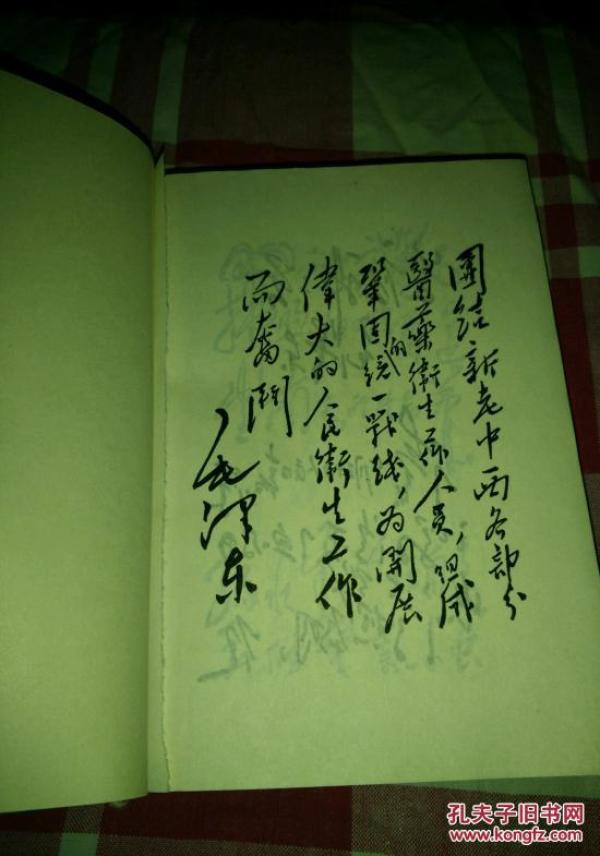 團結新老中西各部分
醫藥衛生工作人員，組成
鞏固的統一戰綫，为開展
偉大的人民衛生工作
而奮鬥
毛澤东
孔夫子旧书网
www.kongfz.com